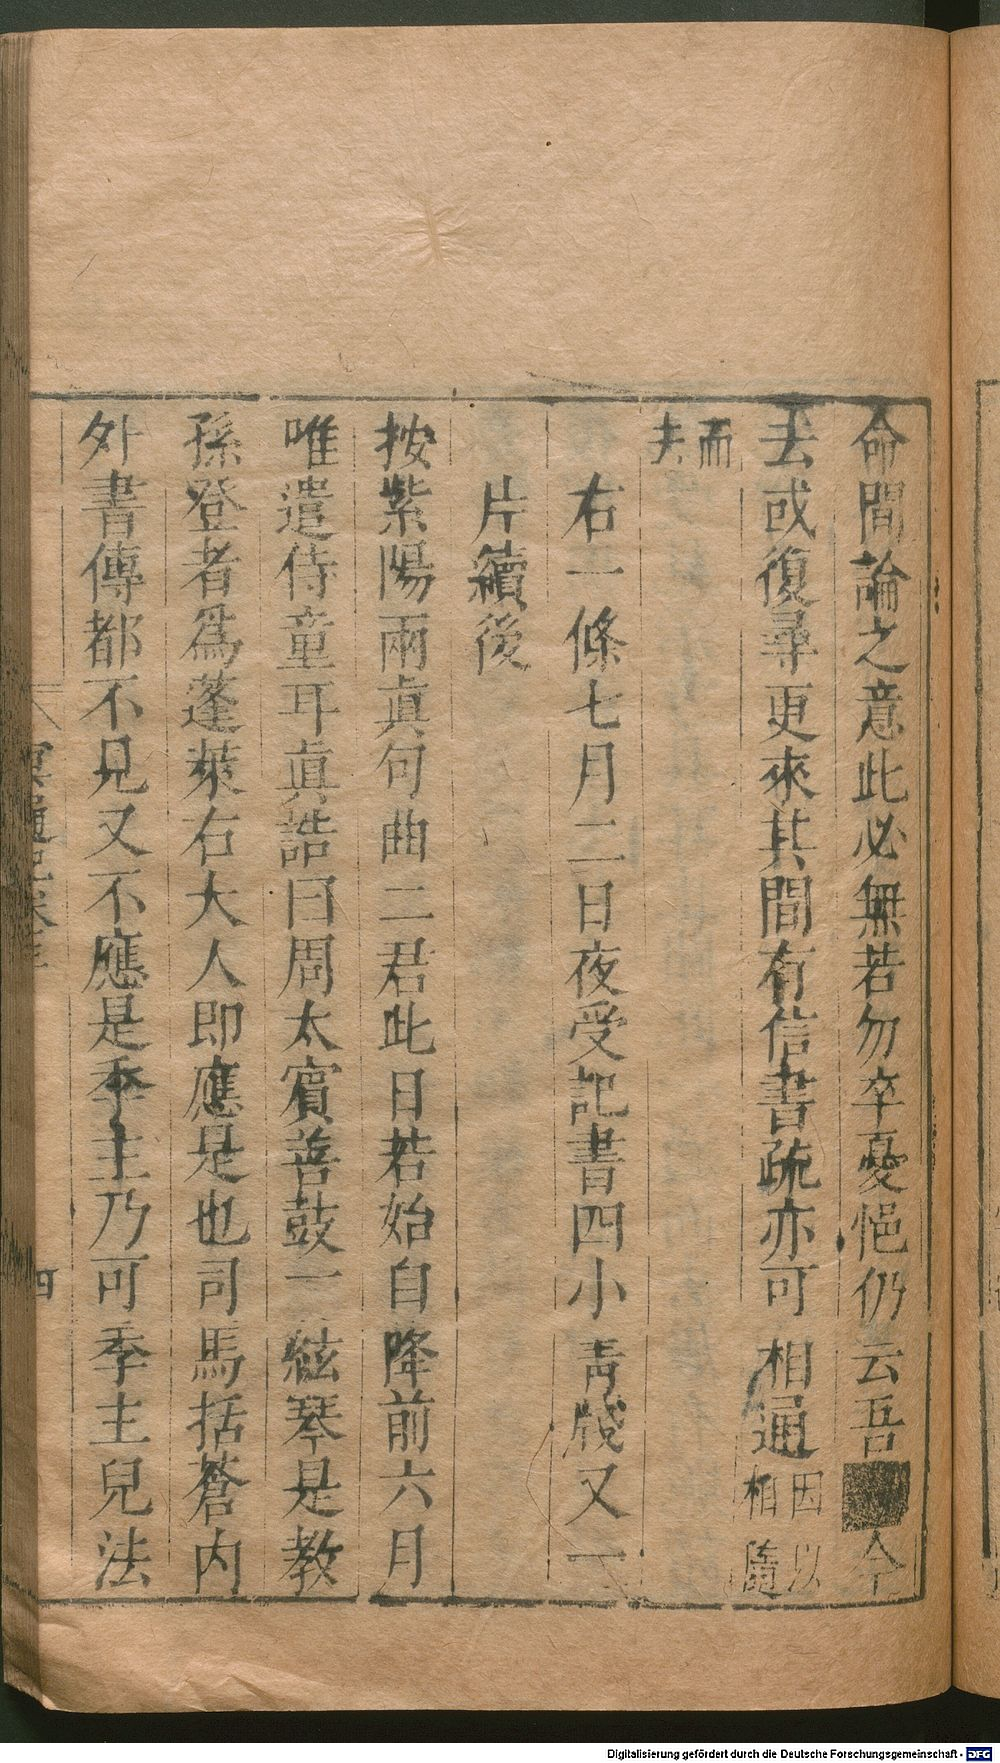 命間論之意此必無若勿卒憂悒仍云吾 今
去或復尋更來其間有信書疏亦可相通因以相隨
而去
右一條七月二日夜受記書四小青牋又一
片續後
按紫陽兩眞句曲二君此日若始自降前六月
唯遣侍童耳眞誥曰周太賓善鼓一絃琴是教
孫登者爲蓬萊右大人即應是也司馬括蒼内
外書傳都不見又不應是季主乃可季主兒法
冥通記卷三
四
Digitalisierung gefördert durch die Deutsche Forschungsgemeinschaft - DFG